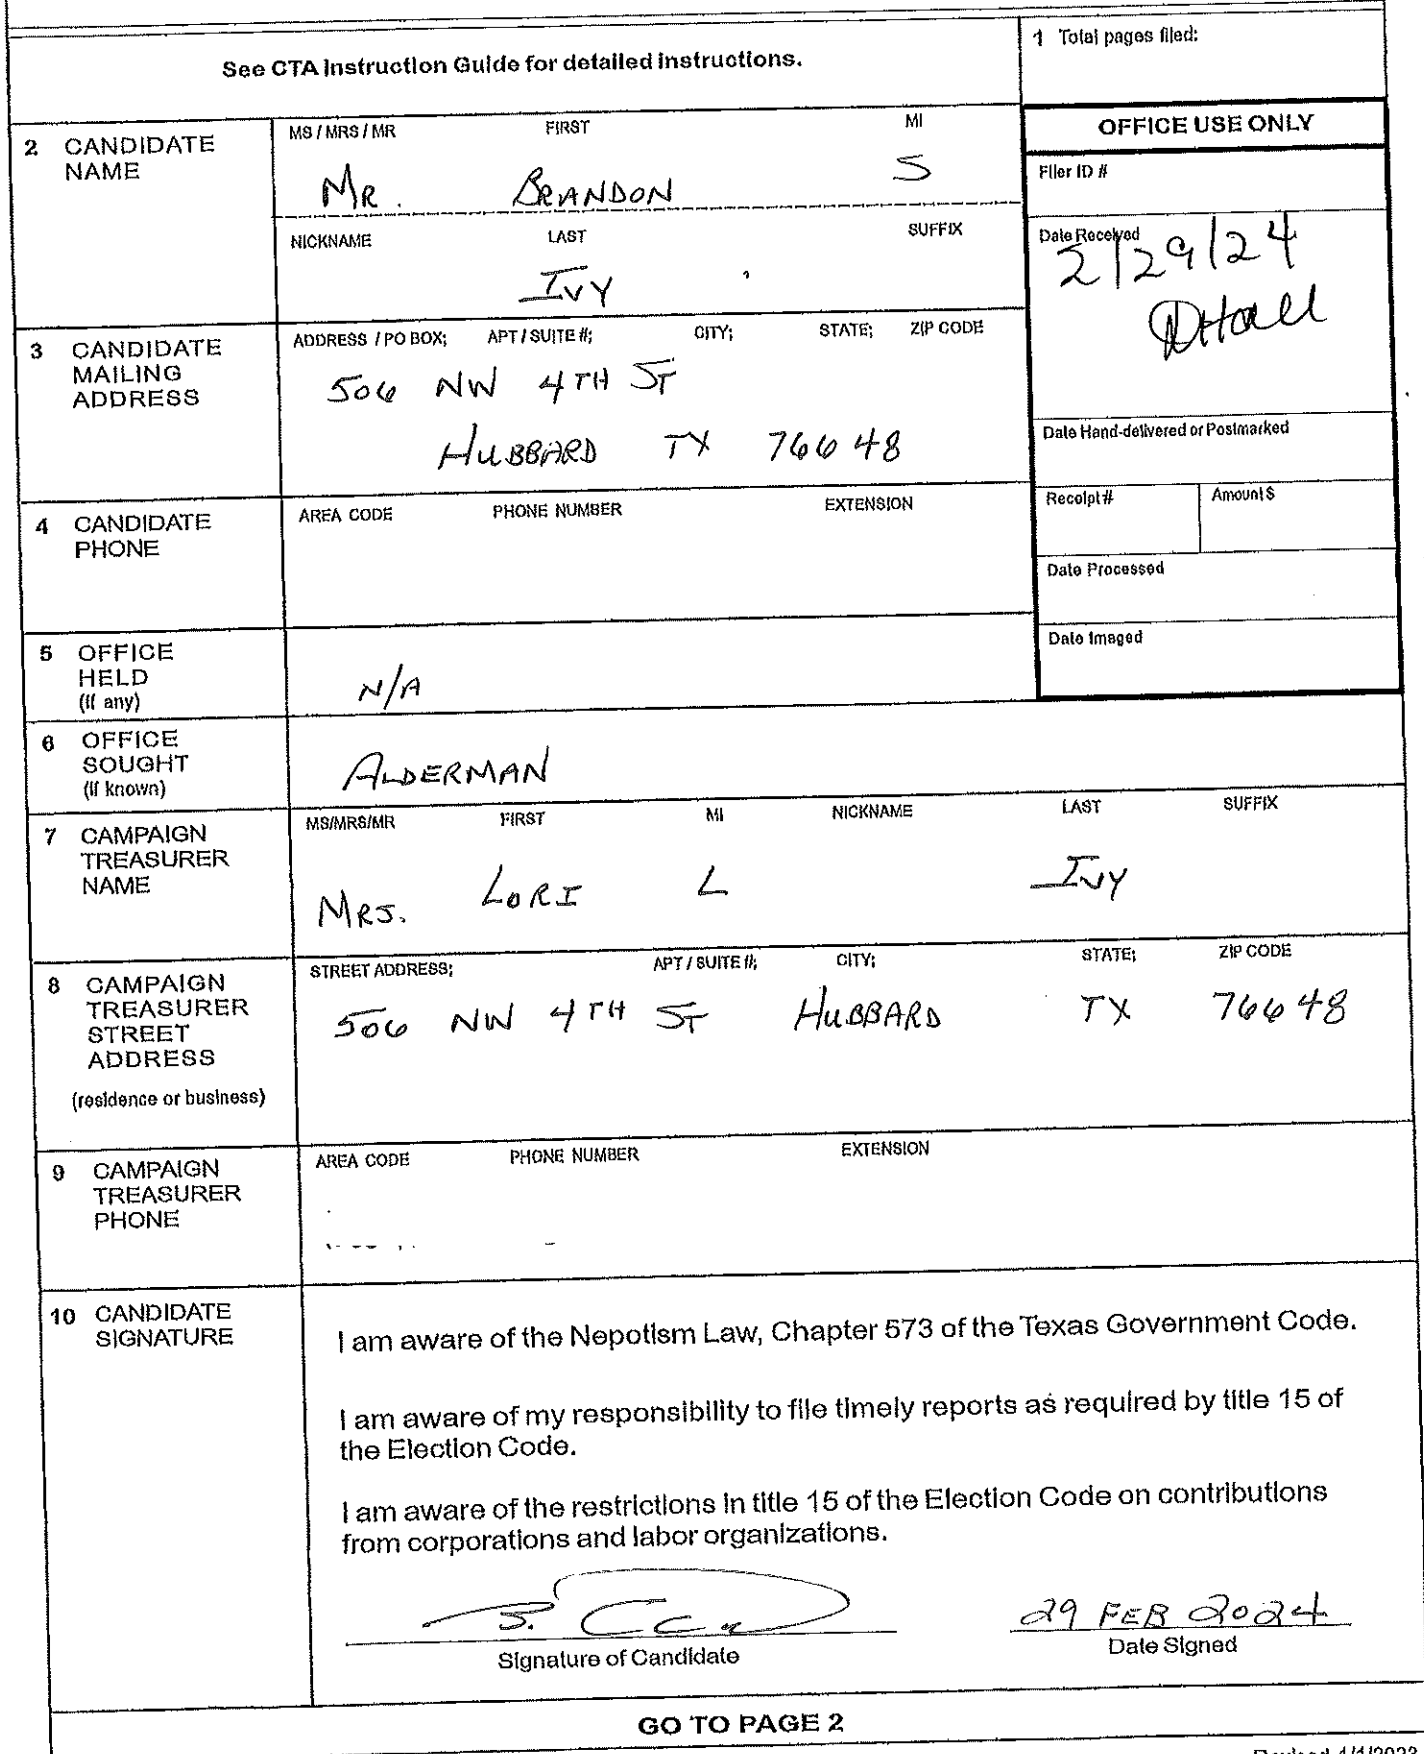 See CTA Instruction Guide for detailed instructions.
1 Total pages filed:
OFFICE USE ONLY
Filer ID #
Date Received
2/29/24
DHall
Date Hand-delivered or Postmarked
Receipt #
Amount $
Date Processed
Date Imaged
2 CANDIDATE NAME
MS / MRS / MR FIRST MI
MR. BRANDON S
NICKNAME LAST SUFFIX
IVY
3 CANDIDATE MAILING ADDRESS
ADDRESS / PO BOX; APT / SUITE #; CITY; STATE; ZIP CODE
506 NW 4TH ST
HUBBARD TX 76648
4 CANDIDATE PHONE
AREA CODE PHONE NUMBER EXTENSION
5 OFFICE HELD (if any)
N/A
6 OFFICE SOUGHT (if known)
ALDERMAN
7 CAMPAIGN TREASURER NAME
MS/MRS/MR FIRST MI NICKNAME LAST SUFFIX
MRS. LORI L IVY
8 CAMPAIGN TREASURER STREET ADDRESS
(residence or business)
STREET ADDRESS; APT / SUITE #; CITY; STATE; ZIP CODE
506 NW 4TH ST HUBBARD TX 76648
9 CAMPAIGN TREASURER PHONE
AREA CODE PHONE NUMBER EXTENSION
10 CANDIDATE SIGNATURE
I am aware of the Nepotism Law, Chapter 573 of the Texas Government Code.
I am aware of my responsibility to file timely reports as required by title 15 of
the Election Code.
I am aware of the restrictions in title 15 of the Election Code on contributions
from corporations and labor organizations.
29 FEB 2024
Signature of Candidate
Date Signed
GO TO PAGE 2